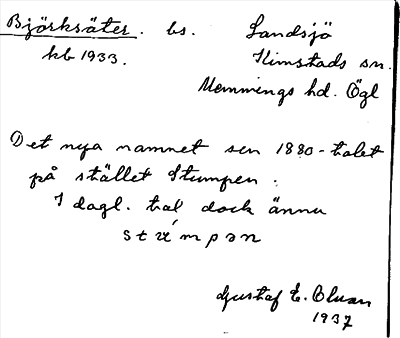 Björksäter. bs. Landsjö
kb 1933. Kimstads sn.
Memmings hd. Ögl
Det nya namnet sen 1880-talet
på stället Stumpen.
I dagl. tal dock ännu
stúmpən
Gustaf E. Olsson
1937